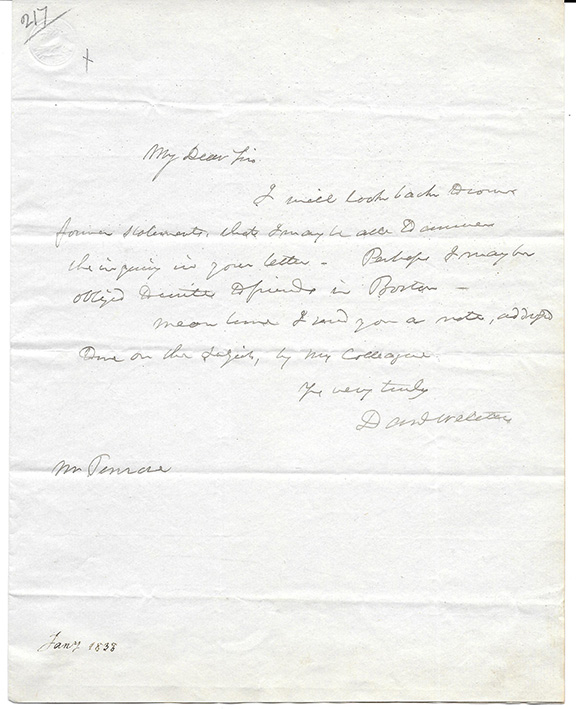 217
My Dear Sir
I will look back to some
former statements, that I may be able to answer
the inquiry in your letter - Perhaps I may be
obliged to write to friends in Boston -
Mean time I send you a note, addressed
to me on the subject, by my Colleague
Yrs very truly
Danl Webster
Mr Penrose
Jany 1838